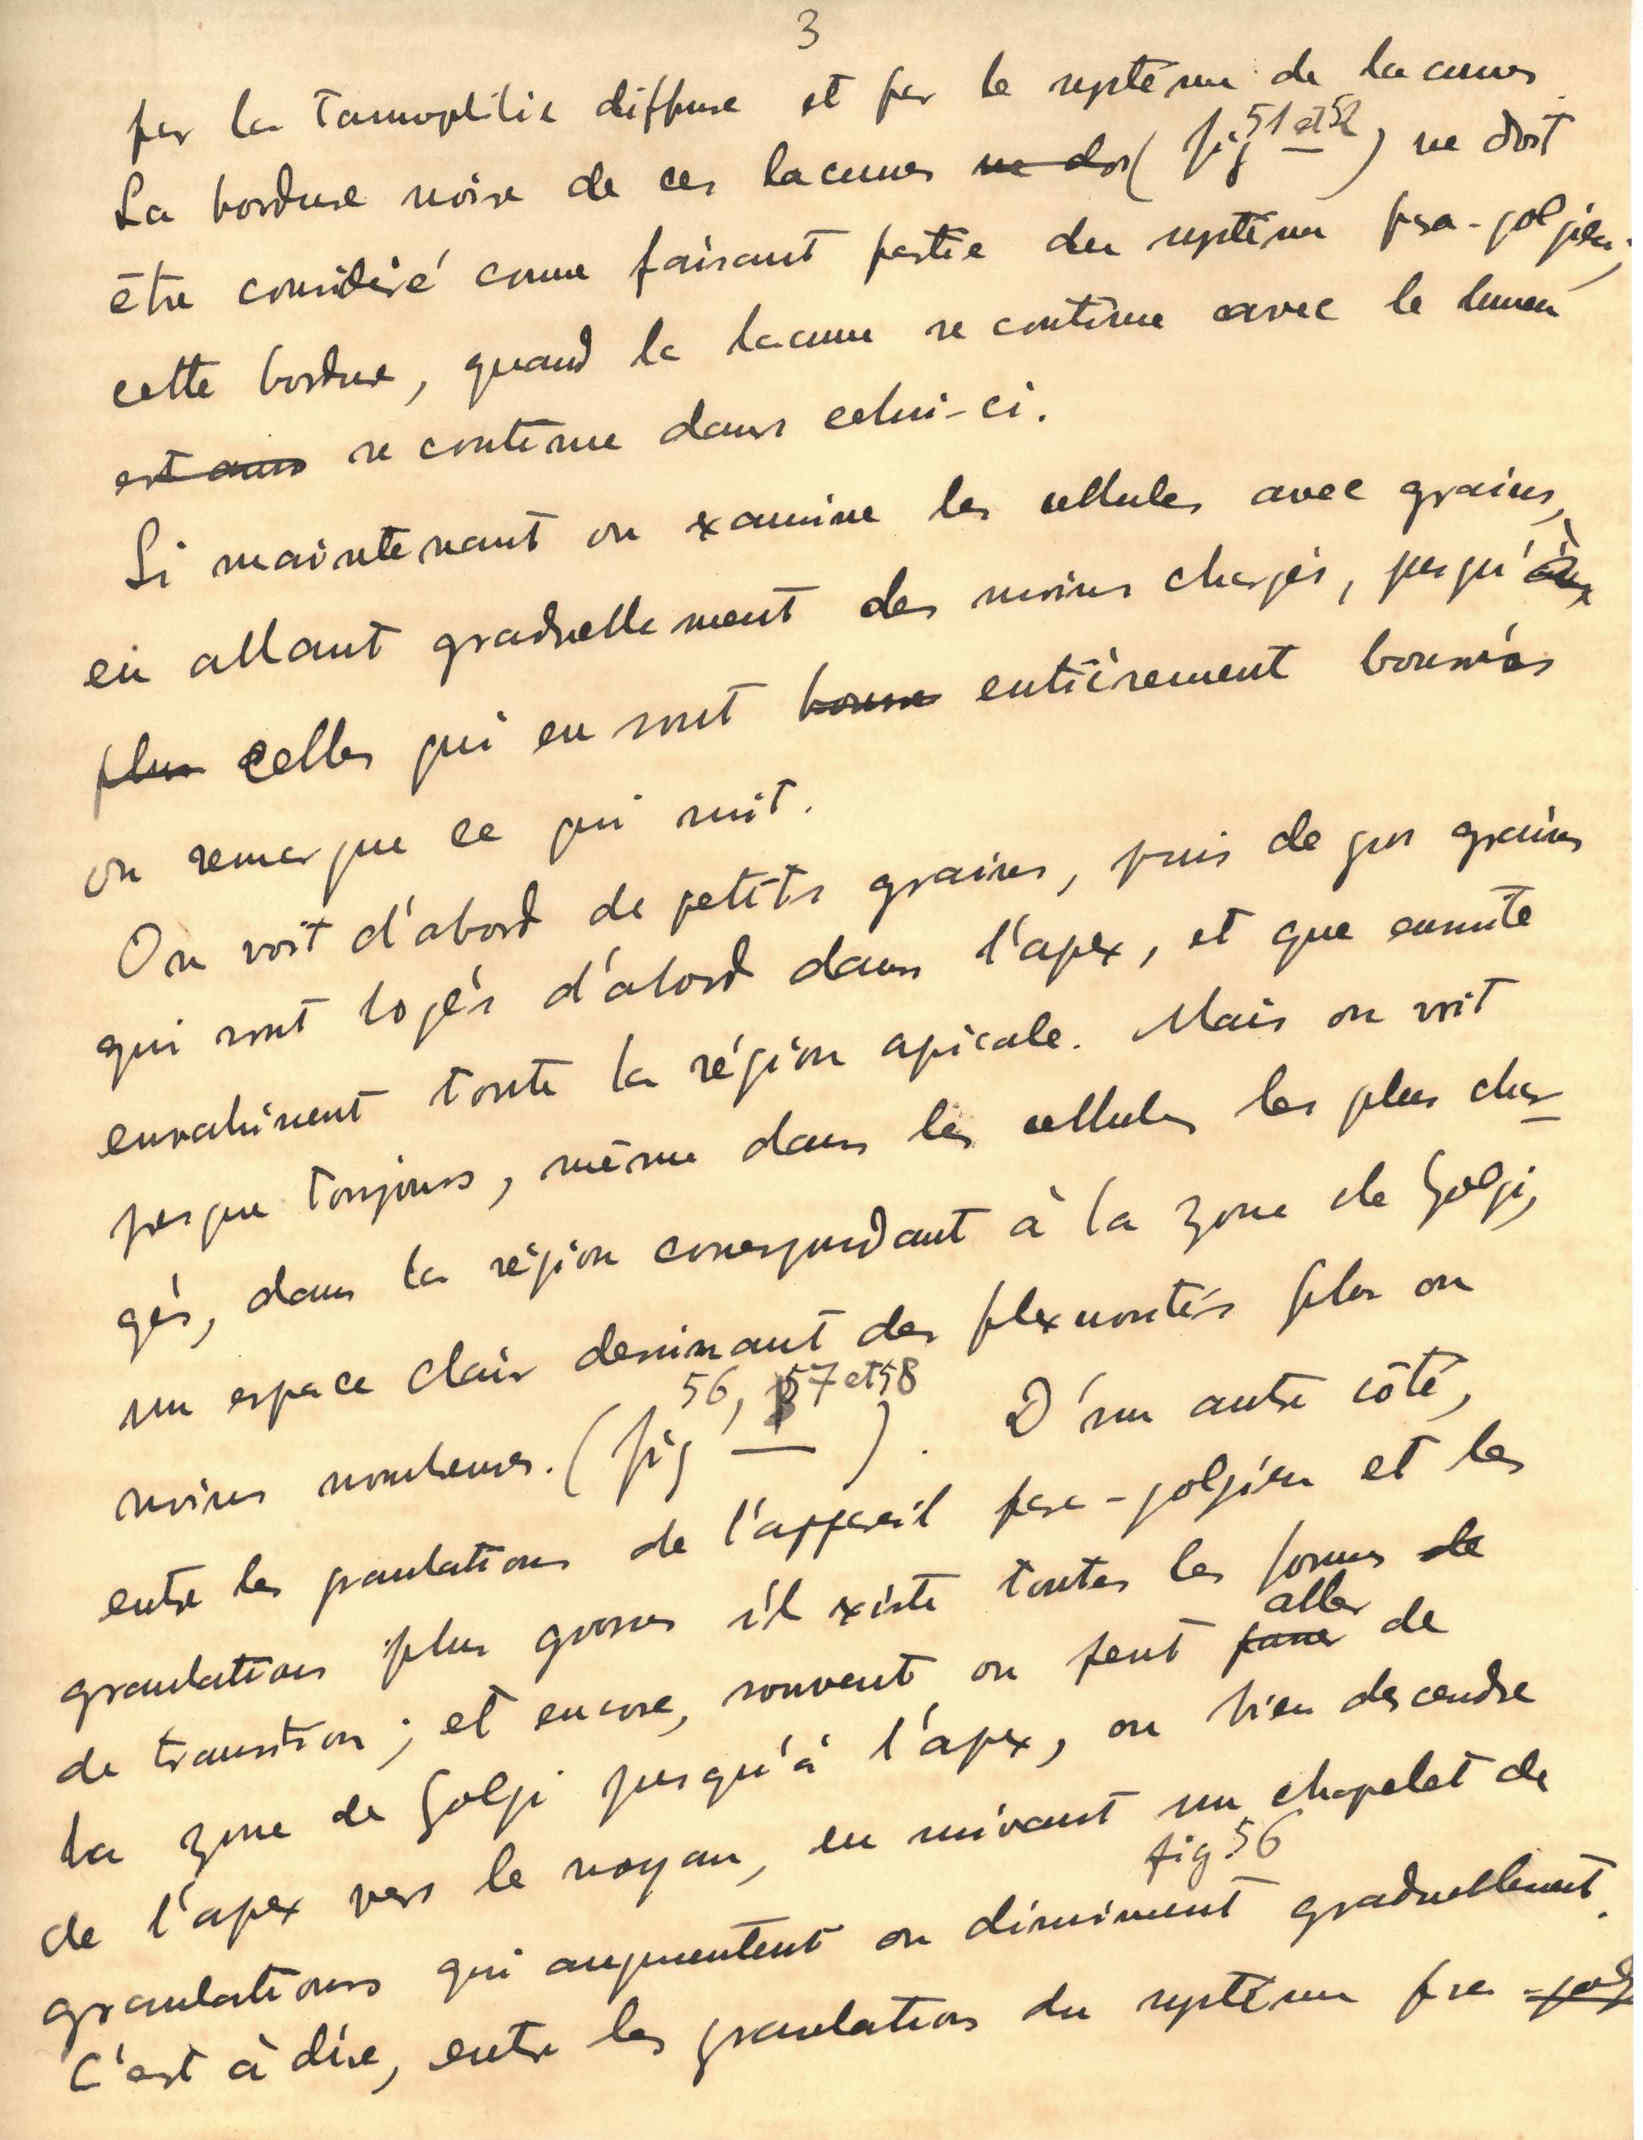 3
par la tannophilie diffuse et par le système de lacunes.
La bordure noire de ces lacunes ne doi (fig 51 et 52) ne doit
être considéré comme faisant partie du système para-golgien;
cette bordure, quand la lacune se continue avec le lumen
est aussi se continue dans celui-ci.
Si maintenant on examine les cellules avec grains,
en allant graduellement des moins chargés, jusqu'à
plus celles qui en sont bourrés entièrement bourrés
on remarque ce qui suit.
On voit d'abord de petits grains, puis de gros grains
qui sont logés d'abord dans l'apex, et que ensuite
envahissent toute la région apicale. Mais on voit
presque toujours, même dans les cellules les plus char-
gés, dans la région correspondant à la zone de Golgi,
un espace clair dessinant des flexuosités plus ou
moins nombreuses. (fig 56, 57 et 58). D'un autre côté,
entre les granulations de l'appareil para-golgien et les
granulations plus grosses il existe toutes les formes de
de transition; et encore, souvent on peut passer aller de
la zone de Golgi jusqu'à l'apex, ou bien descendre
de l'apex vers le noyau, en suivant un chapelet de
fig 56
granulations qui augmentent ou diminuent graduellement.
C'est à dire, entre les granulations du système para-